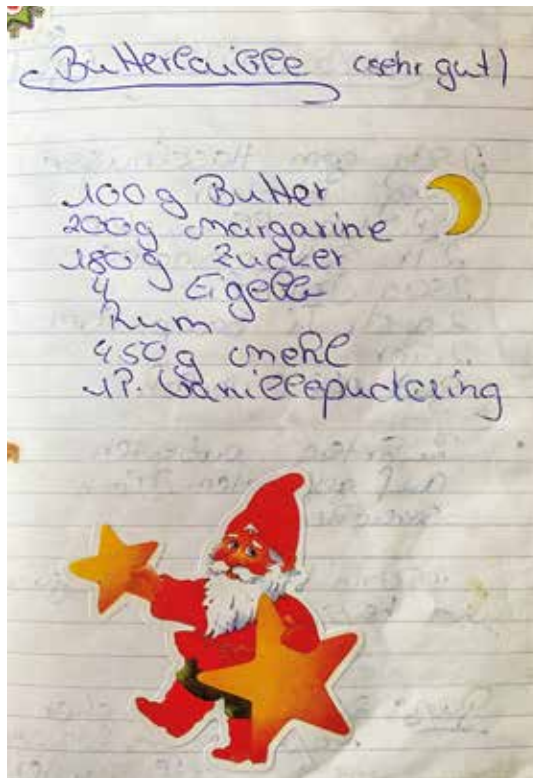 Butterlaible (sehr gut)
100g Butter
200g Margarine
180g Zucker
4 Eigelb
Rum
450g Mehl
1P. Vanillepudding